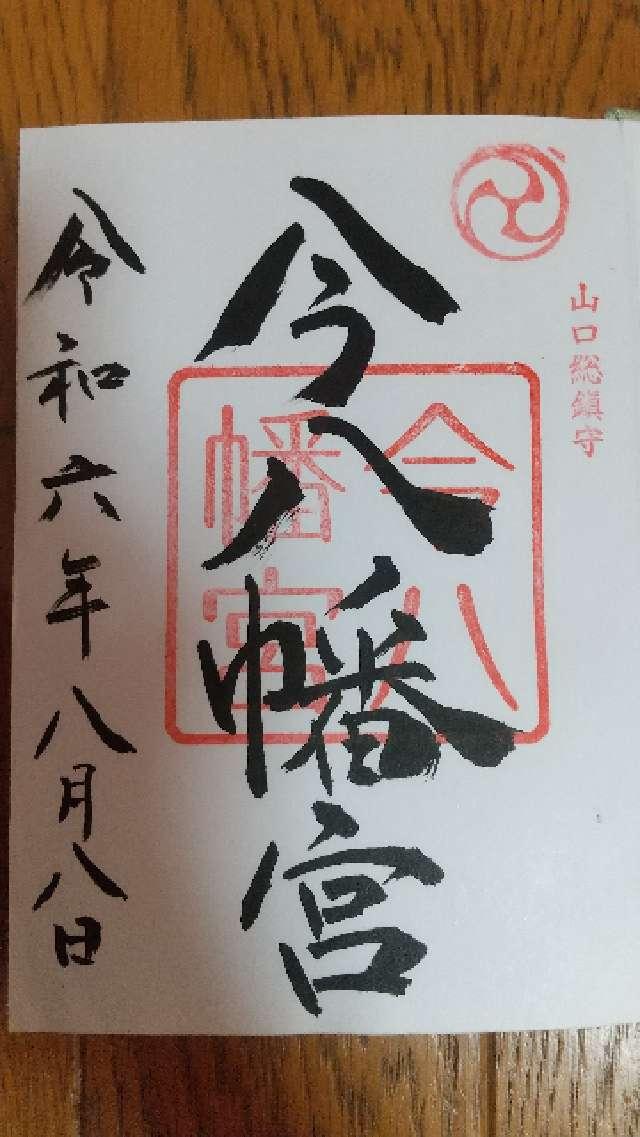 山口総鎮守
今八幡宮
今八
幡宮
令和六年八月八日